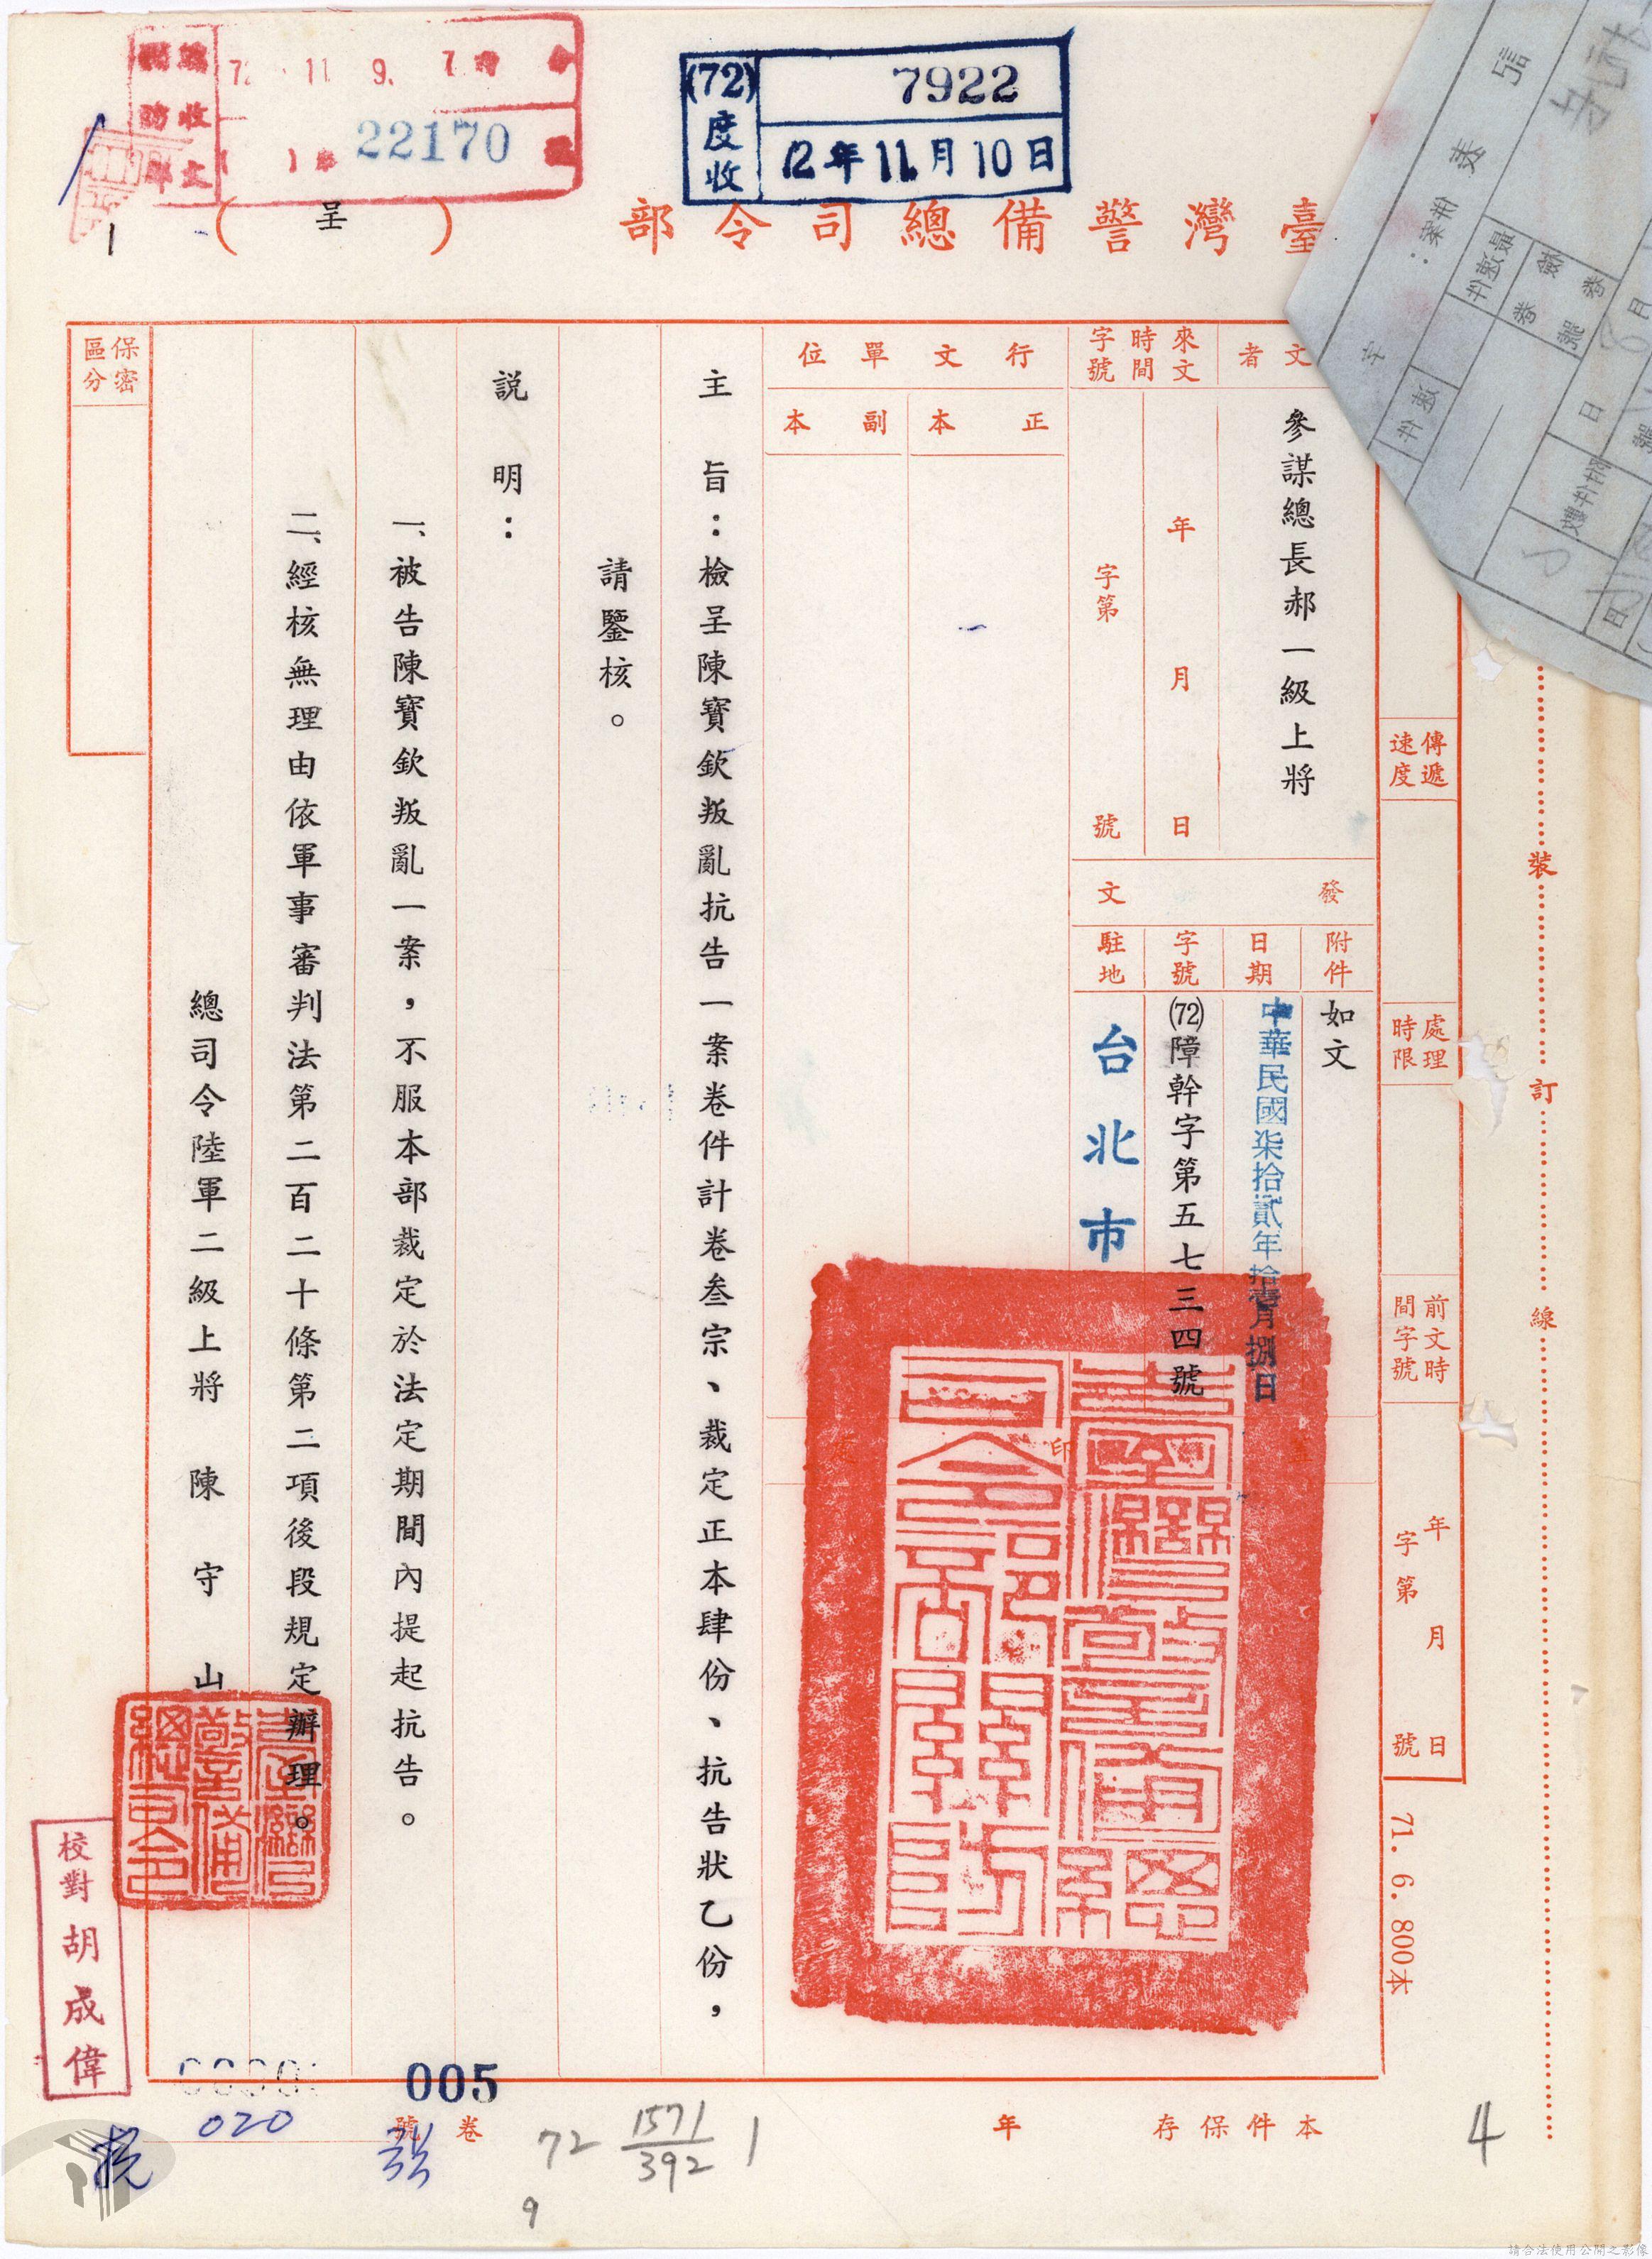 臺灣警備總司令部
（呈）
72 11 9.
收文
22170
(72)度收
7922
12年11月10日
文者
參謀總長郝一級上將
來文
時間
字號
年月日
字第號
行文單位
正本
副本
發文
附件
如文
日期
中華民國柒拾貳年拾壹月捌日
字號
(72)障幹字第五七三四號
駐地
台北市
印
傳遞速度
處理時限
前文時間字號
年月日
字第號
71.6.800本
裝訂線
保密區分
主旨：檢呈陳寶欽叛亂抗告一案卷件計卷叁宗、裁定正本肆份、抗告狀乙份，
請鑒核。
説明：
一、被告陳寶欽叛亂一案，不服本部裁定於法定期間內提起抗告。
二、經核無理由依軍事審判法第二百二十條第二項後段規定辦理。
總司令陸軍二級上將 陳守山
臺灣警備總司令
校對 胡成偉
005
020
本件保存 年
卷號
72 1571/392 1
9
4
請合法使用公開之影像